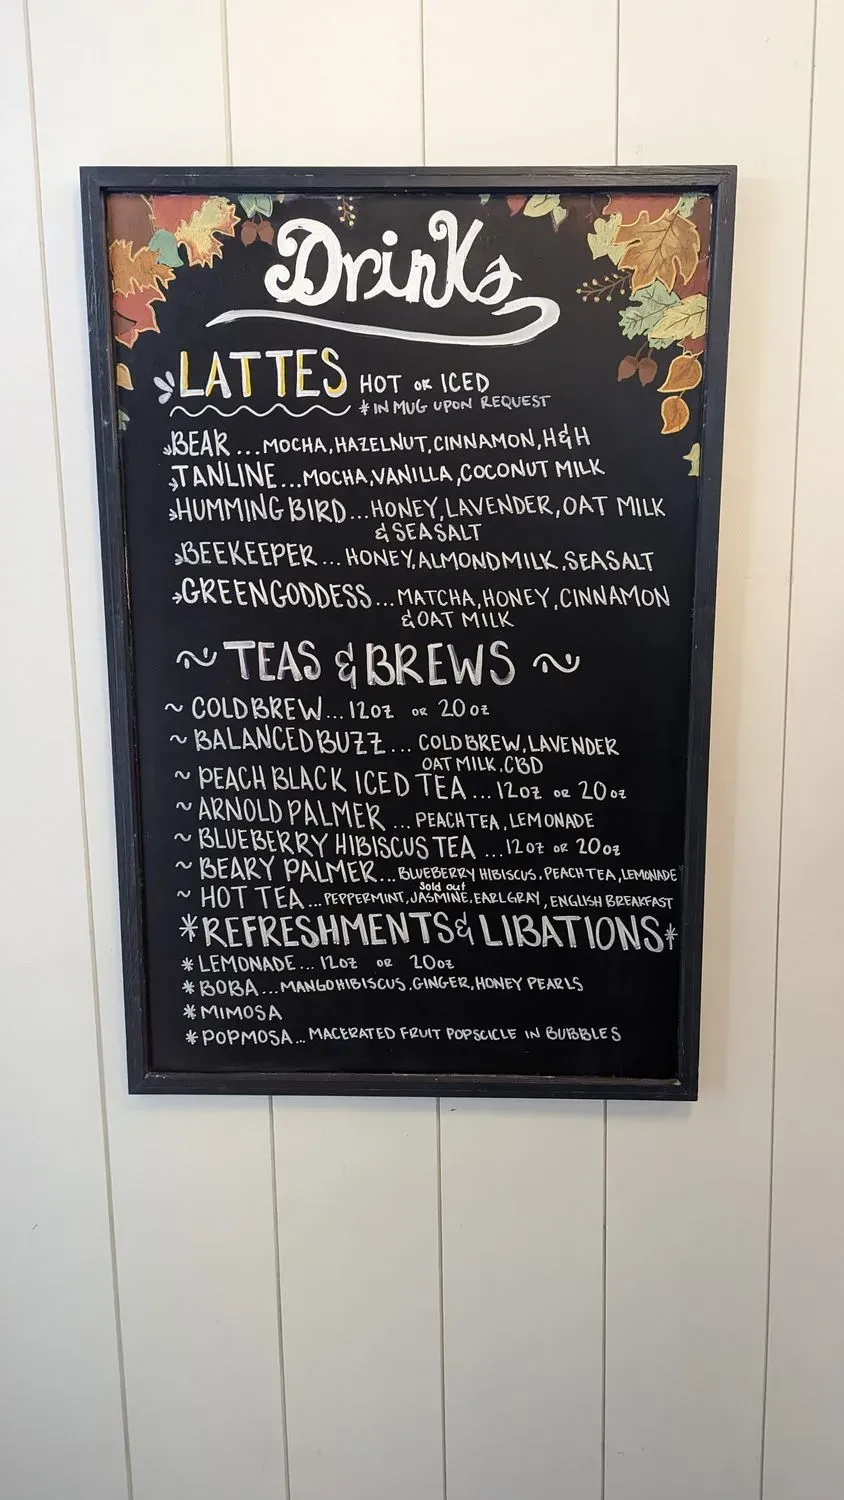 Drinks
LATTES HOT OR ICED
*IN MUG UPON REQUEST
BEAR...MOCHA, HAZELNUT, CINNAMON, H&H
TANLINE...MOCHA, VANILLA, COCONUT MILK
HUMMING BIRD...HONEY, LAVENDER, OAT MILK
& SEASALT
BEEKEEPER...HONEY, ALMOND MILK, SEASALT
GREEN GODDESS...MATCHA, HONEY, CINNAMON
& OAT MILK
~ TEAS & BREWS ~
~ COLD BREW...12oz OR 20oz
~ BALANCED BUZZ...COLD BREW, LAVENDER
OAT MILK, CBD
~ PEACH BLACK ICED TEA...12oz OR 20oz
~ ARNOLD PALMER...PEACH TEA, LEMONADE
~ BLUEBERRY HIBISCUS TEA...12oz OR 20oz
~ BEARY PALMER...BLUEBERRY HIBISCUS, PEACH TEA, LEMONADE
Sold out
~ HOT TEA...PEPPERMINT, JASMINE, EARL GRAY, ENGLISH BREAKFAST
*REFRESHMENTS & LIBATIONS*
*LEMONADE...12oz OR 20oz
*BOBA...MANGO HIBISCUS, GINGER, HONEY PEARLS
*MIMOSA
*POPMOSA...MACERATED FRUIT POPSCICLE IN BUBBLES